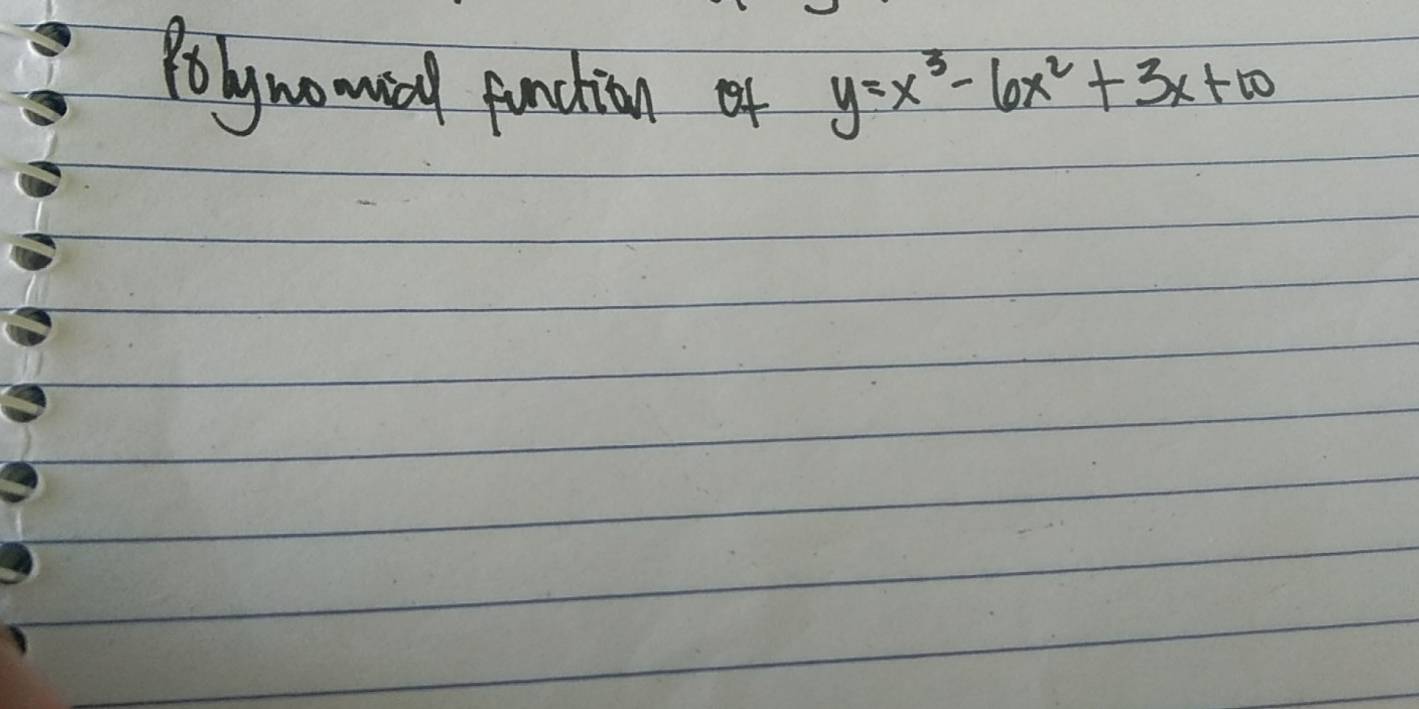 Polynomial function of y=x³-6x²+3x+10